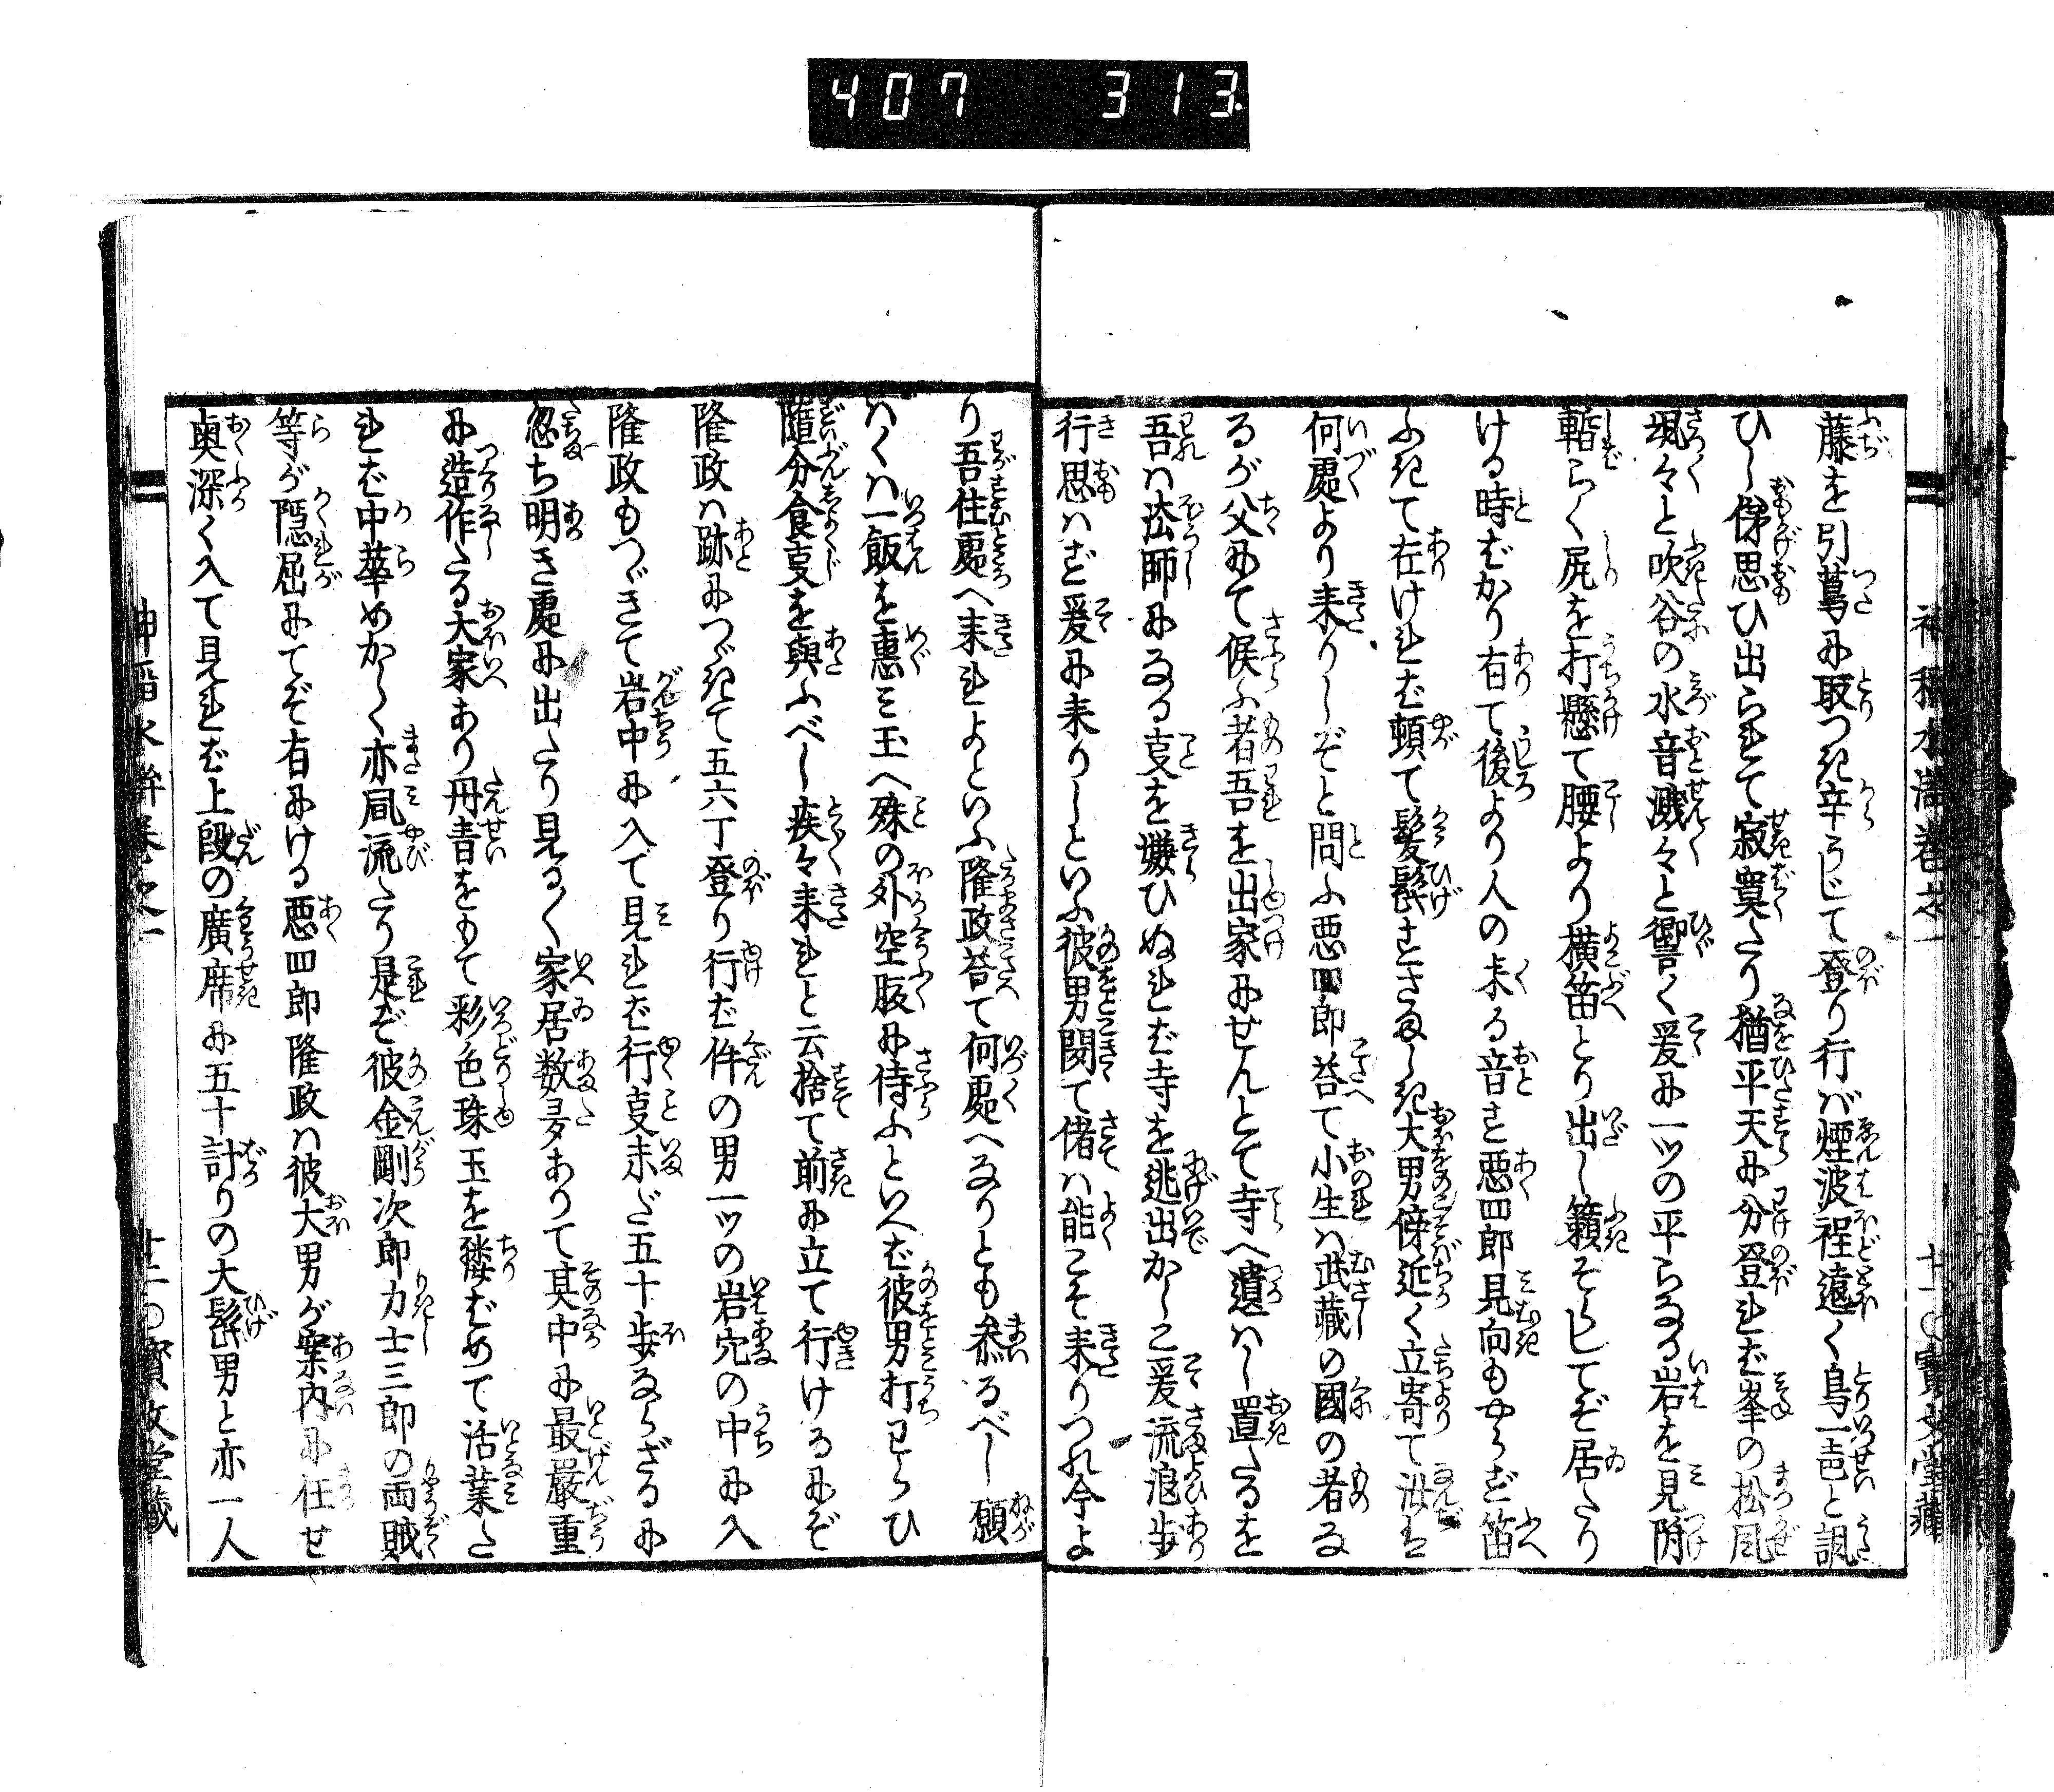 407 313
藤を引蔦に取つき辛うじて登り行バ煙波程遠く鳥一声と諷
ひし俤思ひ出られて寂寞たり猶平天に分登れば峯の松風
颯々と吹谷の水音濺々と響く爰に一ツの平らなる岩を見附
暫らく尻を打懸て腰より横笛とり出し籟そらしてぞ居たり
ける時ばかり有て後より人の来る音す悪四郎見向もやらず笛
ふきて在けれど頓て髪髭はさばしき大男傍近く立寄て汝は
何処より来りしぞと問ふ悪四郎答て小生ハ武蔵の國の者な
るが父にて候ふ者吾を出家にせんとて寺へ遣ハし置たるを
吾ハ法師になる叓を嫌ひぬれば寺を逃出かしこ爰流浪歩
行思ハず爰に来りしといふ彼男聞て偖ハ能こそ来りつれ今よ
り吾住處へ来れよといふ隆政答て何處へなりとも参るべし願
ハくハ一飯を惠ミ玉へ殊の外空腹に侍ふといへば彼男打わらひ
随分食叓を與ふべし疾々来れと云捨て前に立て行けるにぞ
隆政ハ跡につゞきて五六丁登り行ば件の男一ツの岩穴の中に入
隆政もつゞきて岩中に入て見れば行叓未だ五十歩ならざるに
忽ち明き處に出たり見るく家居数多ありて其中に最嚴重
に造作たる大家あり丹青をもて彩色珠玉を鏤ばめて活業た
れば中華めかしく亦風流たり是ぞ彼金剛次郎力士三郎の両賊
等が隠屈にてぞ有にける悪四郎隆政ハ彼大男が案内に任せ
奥深く入て見れば上段の廣席に五十計りの大髭男と亦一人